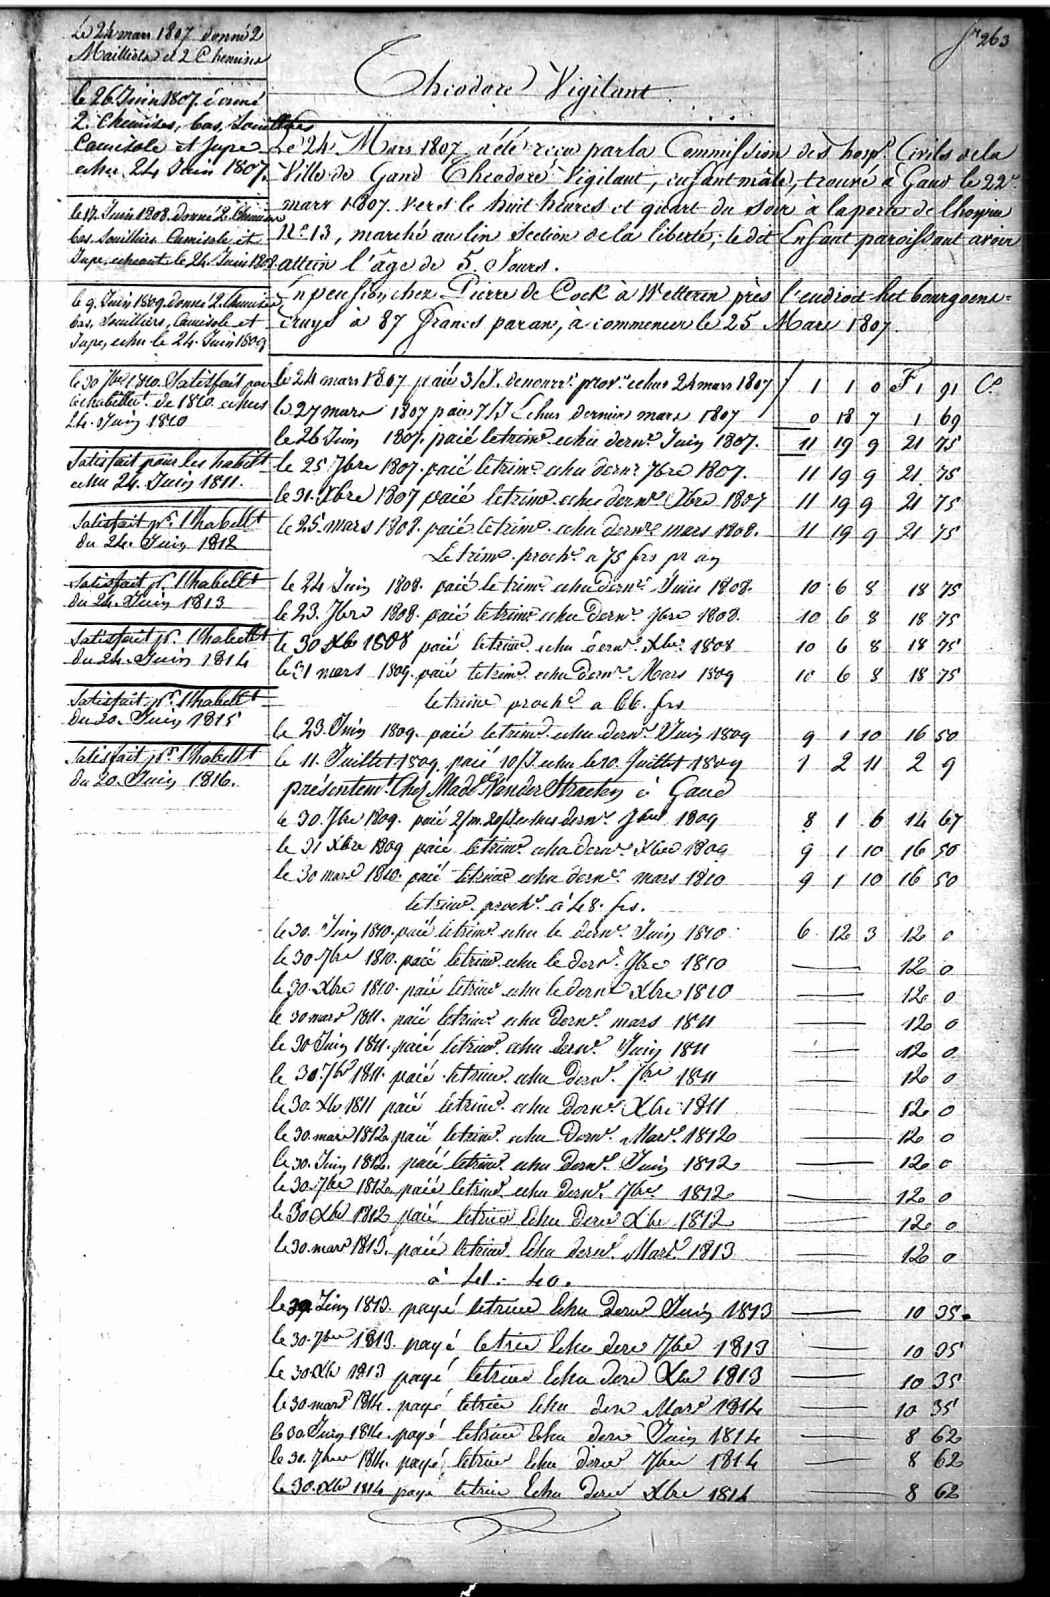 fo 263
Theodore Vigilant
Le 24 mars 1807 donné 2
Maillots et 2 Chemises
le 26 Juin 1807 donné
2. Chemises, bas, Souilliers
Camisole et Jupe
echu 24 Juin 1807.
le 17. Juin 1808. donné 2. Chemises
bas. Souilliers Camisole et
Jupe, echeant le 24. Juin 1808
le 9. Juin 1809 donné 2. Chemises
bas, Souilliers, Camisole et
Jupe, echu le 24. Juin 1809
le 30 7bre 1810. Satisfait pour
l'habillemt. de 1810. echus
24. Juin 1810
Satisfait pour les habillt
echu 24. Juin 1811.
Satisfait pr. l'habillt
du 24. Juin 1812
Satisfait pr. l'habillt
du 24. Juin 1813
Satisfait pr. l'habillt
du 24. Juin 1814
Satisfait pr. l'habillt
du 20. Juin 1815
Satisfait pr. l'habillt
du 20. Juin 1816.
Le 24 Mars 1807, a été reçu par la Commission des hosp. Civils de la
Ville de Gand Theodore Vigilant, enfant mâle, trouvé à Gand le 22e
mars 1807. vers le huit heures et quart du Soir à la porte de l'hospice
No. 13, marché au lin Section de la liberté; le dit Enfant paroissant avoir
atteint l'âge de 5. Jours.
En pension chez Pierre de Cock à Wetteren près l'endroit het bourgoens-
Cruys à 87 francs par an, à commencer le 25 Mars 1807.
le 24 mars 1807 paié 3/J. de nourre. prove. echus 24 mars 1807 / 1 1 0 F 1 91 Ce
le 27 mars 1807 paié 7/J Echus dernier mars 1807 0 18 7 1 69
le 26 Juin 1807. paié le trime. echu derne. Juin 1807. 11 19 9 21 75
le 25 7bre 1807. paié le trime. echu derne. 7bre 1807. 11 19 9 21 75
le 31. Xbre 1807 paié le trime. echu derne. Xbre 1807 11 19 9 21 75
le 25 mars 1808. paié le trime. echu derne. mars 1808. 11 19 9 21 75
Le trime. proche. a 75 frs pr an
le 24 Juin 1808. paié le trime. echu derne. Juin 1808. 10 6 8 18 75
le 23. 7bre 1808. paié le trime. echu derne. 7bre 1808. 10 6 8 18 75
le 30 Xbre 1808 paié le trime. echu derne. Xbre. 1808 10 6 8 18 75
le 31 mars 1809. paié le trime. echu derne. Mars 1809 10 6 8 18 75
le trime proche. a 66. frs
le 23. Juin 1809. paié le trime. echu derne. Juin 1809 9 1 10 16 50
le 11. Juillet 1809. paié 10/J. echu le 10. Juillet 1809 1 2 11 2 9
présentemt. Chez Made. Vander Straeten à Gand
le 30. 7bre 1809. paié 2/m. 20/J echus derne. 7bre 1809 8 1 6 14 67
le 31 Xbre 1809 paié le trime. echu derne. Xbre 1809 9 1 10 16 50
le 30 mars 1810. paié le trime echu derne. mars 1810 9 1 10 16 50
le trime. proche. à 48. frs.
le 30. Juin 1810. paié le trime. echu le derne. Juin 1810 6 12 3 12 0
le 30 7bre 1810. paié le trime. echu le derne. 7bre 1810 12 0
le 30. Xbre 1810. paié le trime. echu le derne Xbre 1810 12 0
le 30 mars 1811. paié le trime. echu derne. mars 1811 12 0
le 30 Juin 1811. paié le trime. echu derne. Juin 1811 12 0
le 30 7bre 1811. paié le trime. echu derne. 7bre 1811 12 0
le 30. Xbre 1811 paié le trime. echu derne. Xbre 1811 12 0
le 30. mars 1812. paié le trime. echu derne. Mars. 1812 12 0
le 30. Juin 1812. paié le trime. echu derne. Juin 1812 12 0
le 30. 7bre 1812. paié le trime. echu derne. 7bre 1812 12 0
le 30 Xbre 1812 paié le trime Echu derne Xbre 1812 12 0
le 30. mars 1813. paié le trime. Echu derne. Mars 1813 12 0
à 41. 40.
le 30 Juin 1813. payé le trime Echu derne Juin 1813 10 35.
le 30. 7bre 1813. payé le trime Echu derne 7bre 1813 10 35
le 30. Xbre 1813 payé le trime Echu derne Xbre 1813 10 35
le 30 mars 1814. payé le trime Echu dern Mars 1814 10 35
le 30 Juin 1814. payé le trime Echu derne Juin 1814 8 62
le 30. 7bre 1814. payé le trime Echu derne 7bre 1814 8 62
le 30. Xbre 1814 payé le trime Echu derne Xbre 1814 8 62